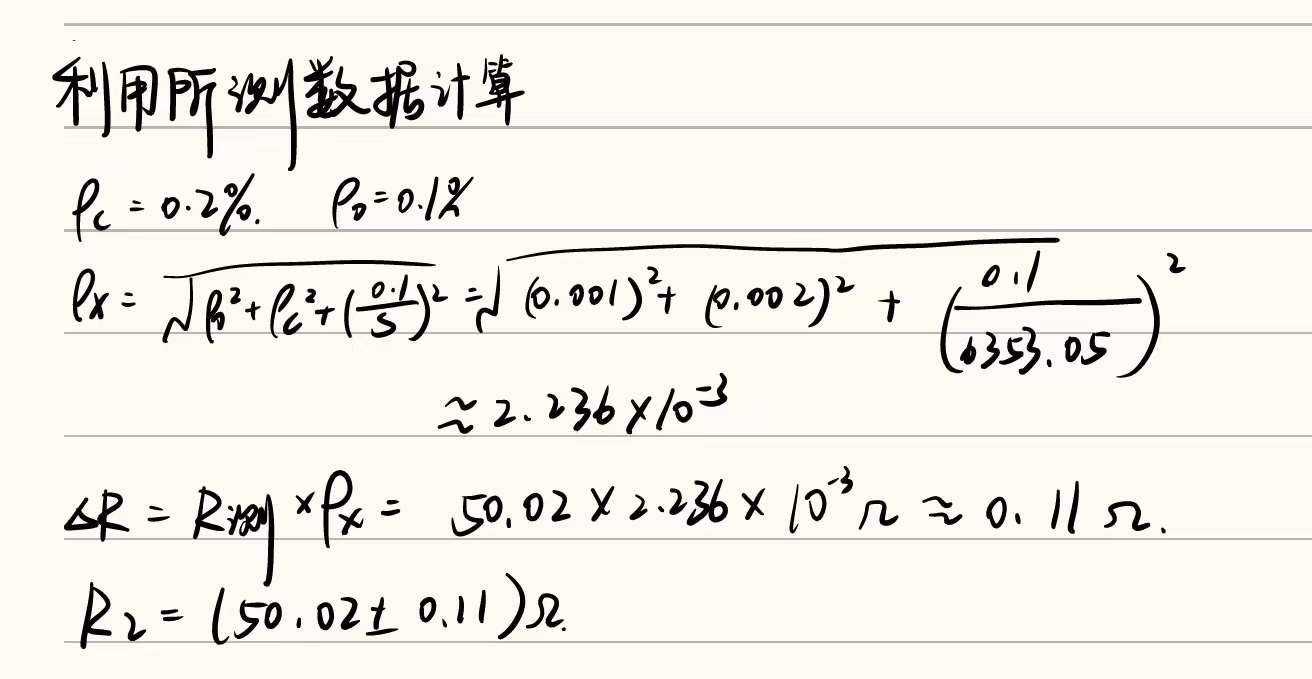 利用所测数据计算
ρc = 0.2%. ρ0 = 0.1%
ρx = √(ρ0² + ρc² + (0.1/S)²) = √((0.001)² + (0.002)² + (0.1/6353.05)²)
≈ 2.236 × 10⁻³
ΔR = R测 × ρx = 50.02 × 2.236 × 10⁻³ Ω ≈ 0.11 Ω.
R2 = (50.02 ± 0.11) Ω.